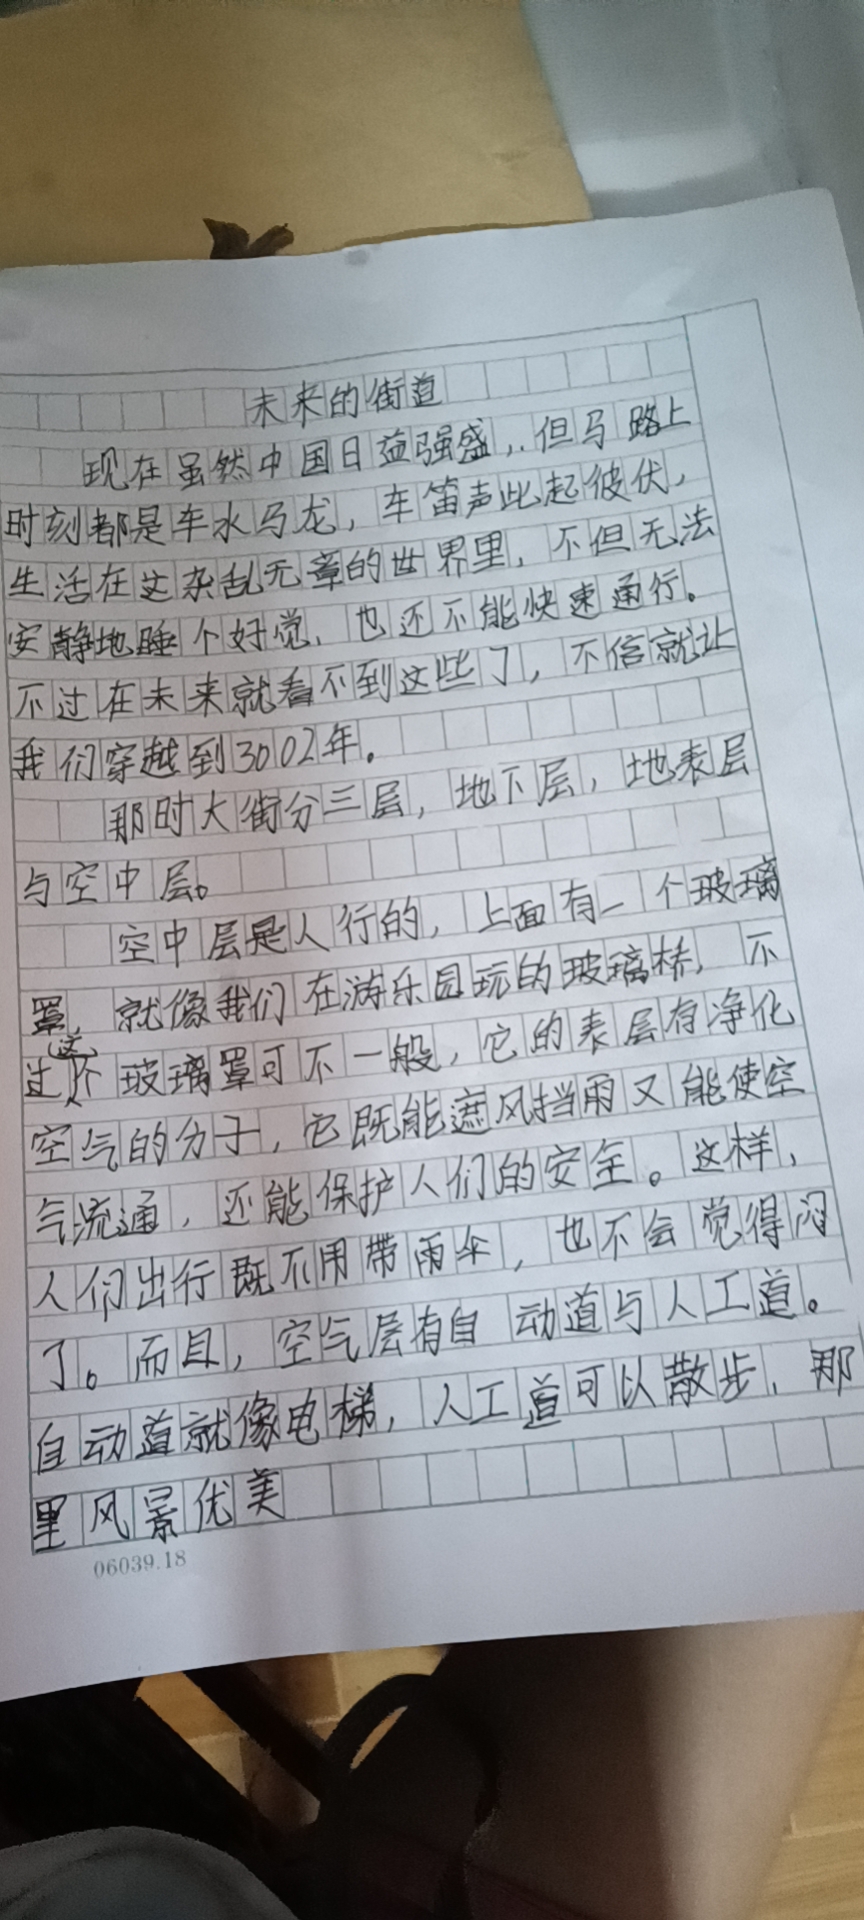 未来的街道
现在虽然中国日益强盛，但马路上
时刻都是车水马龙，车笛声此起彼伏，
生活在这杂乱无章的世界里，不但无法
安静地睡个好觉，也还不能快速通行。
不过在未来就看不到这些了，不信就让
我们穿越到3002年。
那时大街分三层，地下层，地表层
与空中层。
空中层是人行的，上面有一个玻璃
罩，就像我们在游乐园玩的玻璃桥，不
过这个玻璃罩可不一般，它的表层有净化
空气的分子，它既能遮风挡雨又能使空
气流通，还能保护人们的安全。这样，
人们出行既不用带雨伞，也不会觉得闷
了。而且，空气层有自动道与人工道。
自动道就像电梯，人工道可以散步，那
里风景优美
06039.18